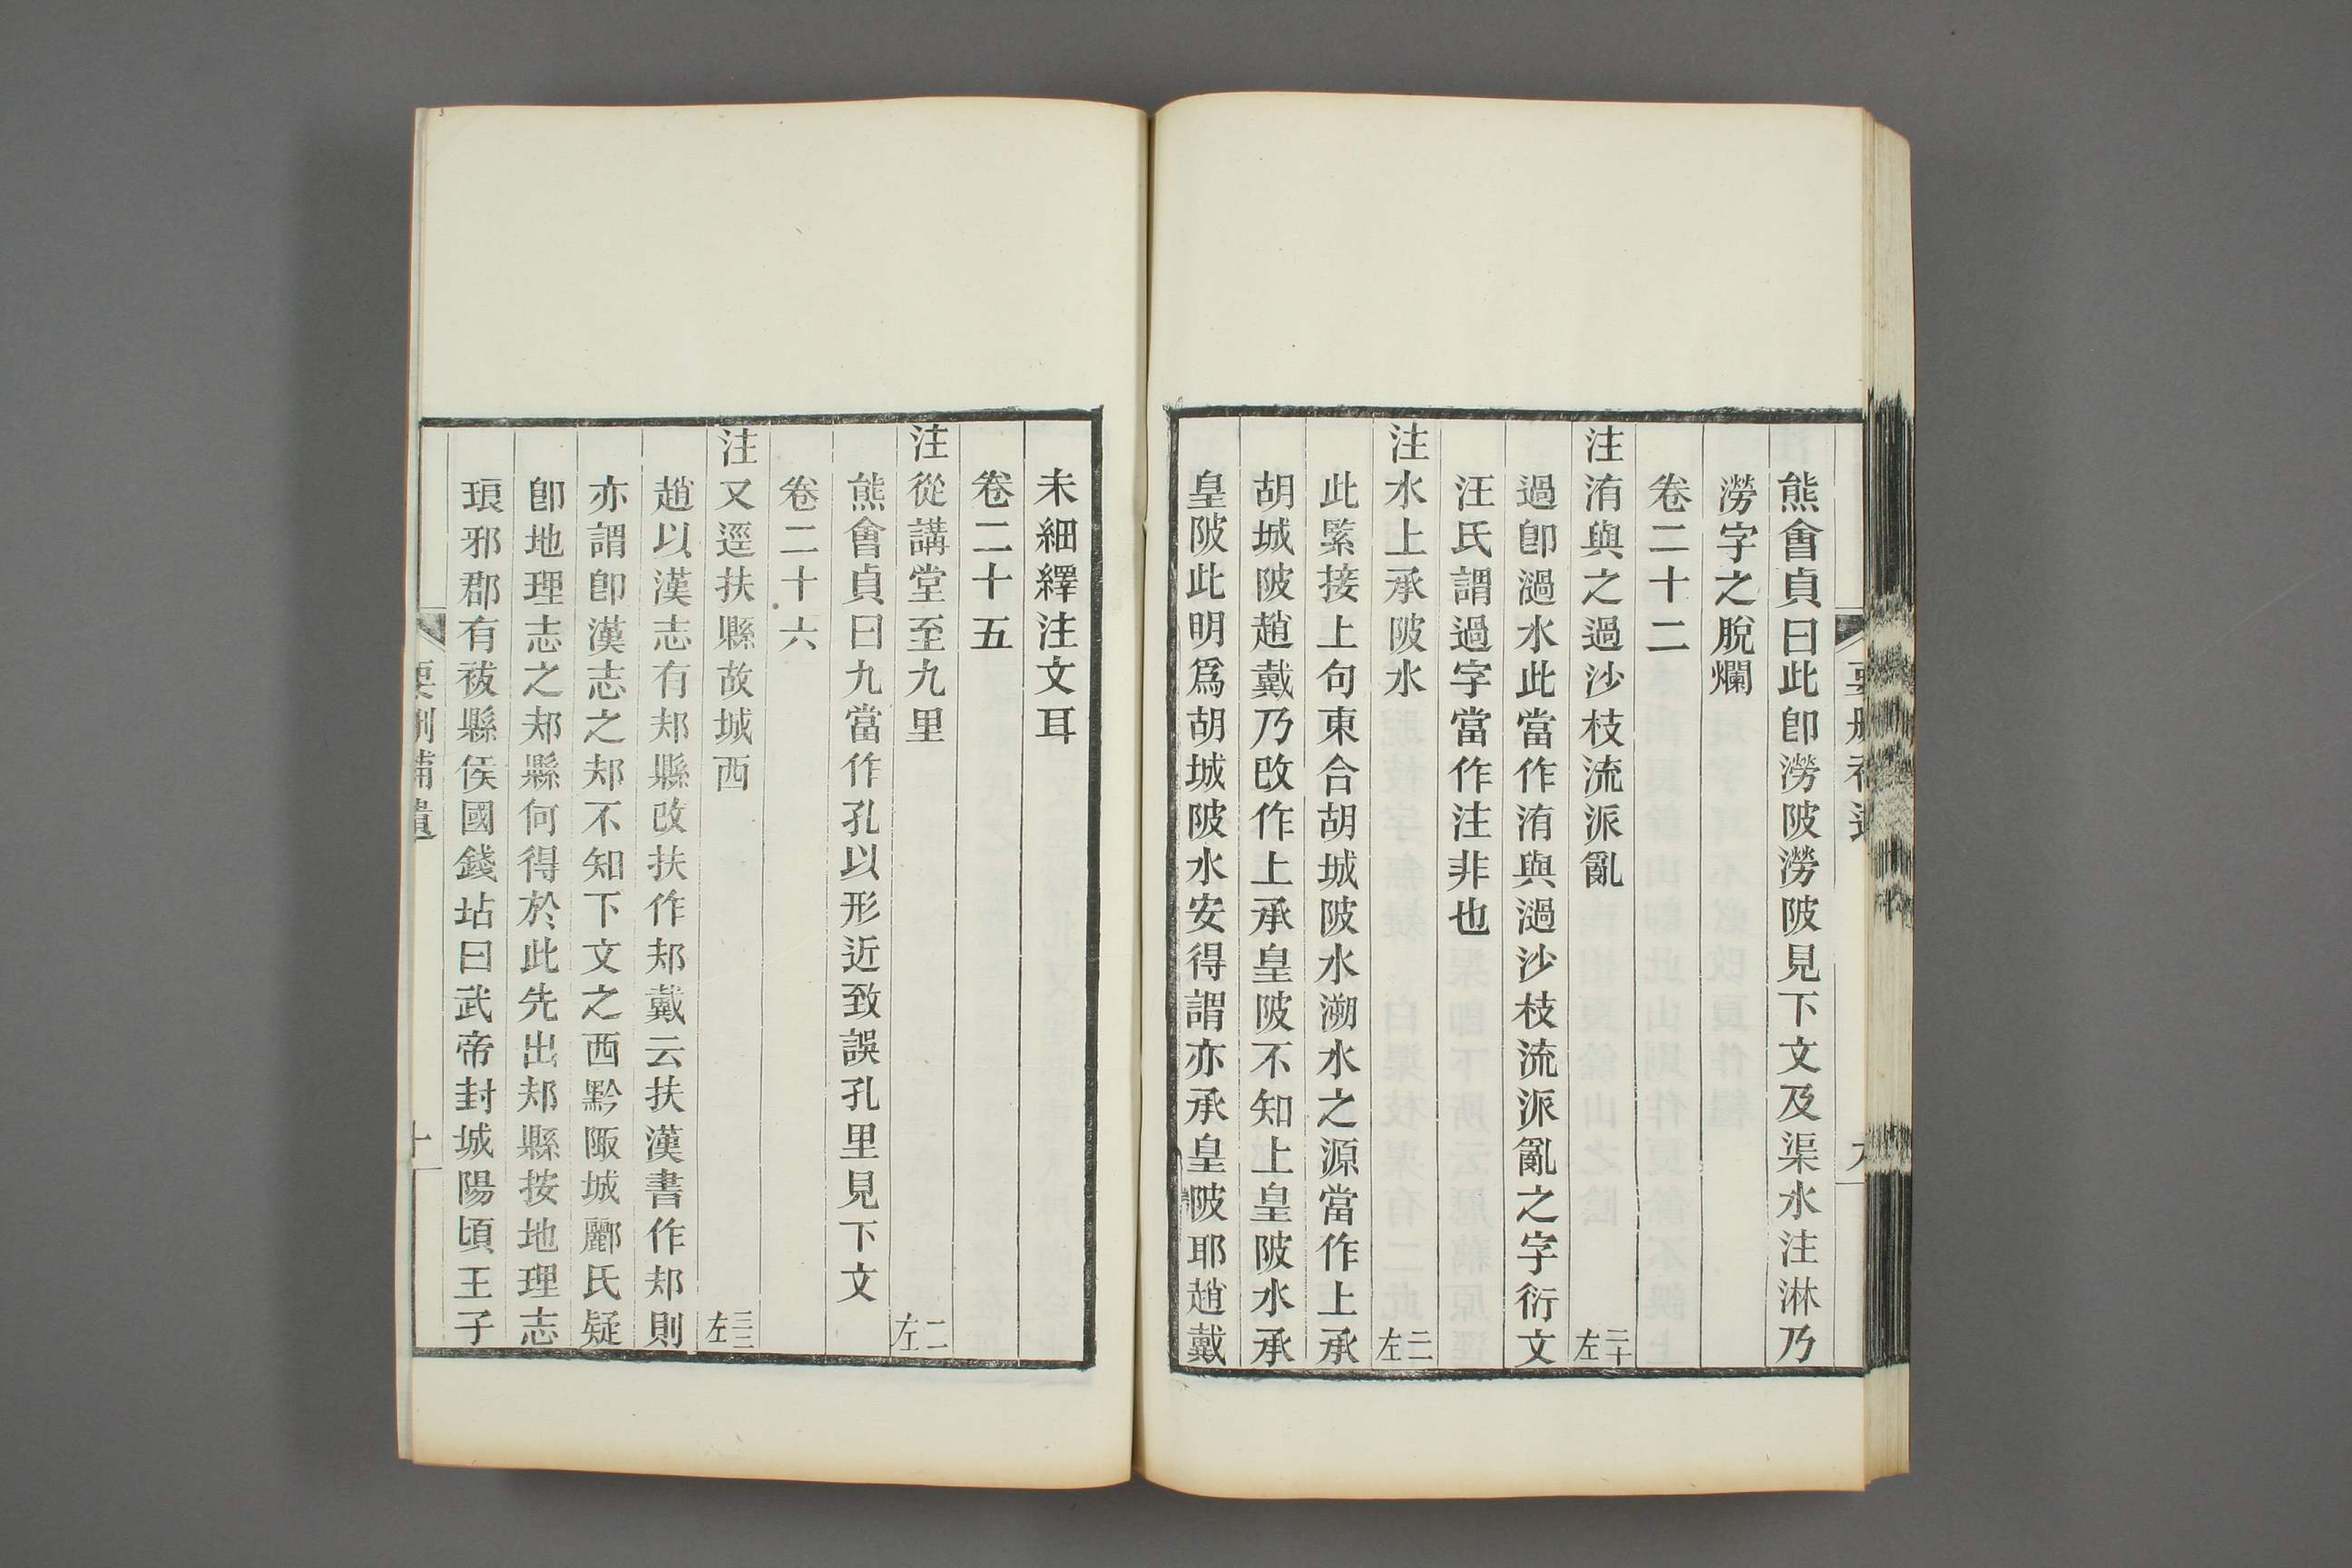 熊會貞曰此卽澇陂澇陂見下文及渠水注淋乃
澇字之脫爛
卷二十二
注洧與之過沙枝流派亂 二十左
過卽濄水此當作洧與濄沙枝流派亂之字衍文
汪氏謂過字當作注非也
注水上承陂水 二二左
此緊接上句東合胡城陂水溯水之源當作上承
胡城陂趙戴乃改作上承皇陂不知上皇陂水承
皇陂此明爲胡城陂水安得謂亦承皇陂耶趙戴
未細繹注文耳
卷二十五
注從講堂至九里 二左
熊會貞曰九當作孔以形近致誤孔里見下文
卷二十六
注又逕扶縣故城西 三二左
趙以漢志有郟縣改扶作郟戴云扶漢書作郟則
亦謂卽漢志之郟不知下文之西黔陬城酈氏疑
卽地理志之郟縣何得於此先出郟縣按地理志
琅邪郡有袚縣侯國錢坫曰武帝封城陽頃王子
要刪補遺
十